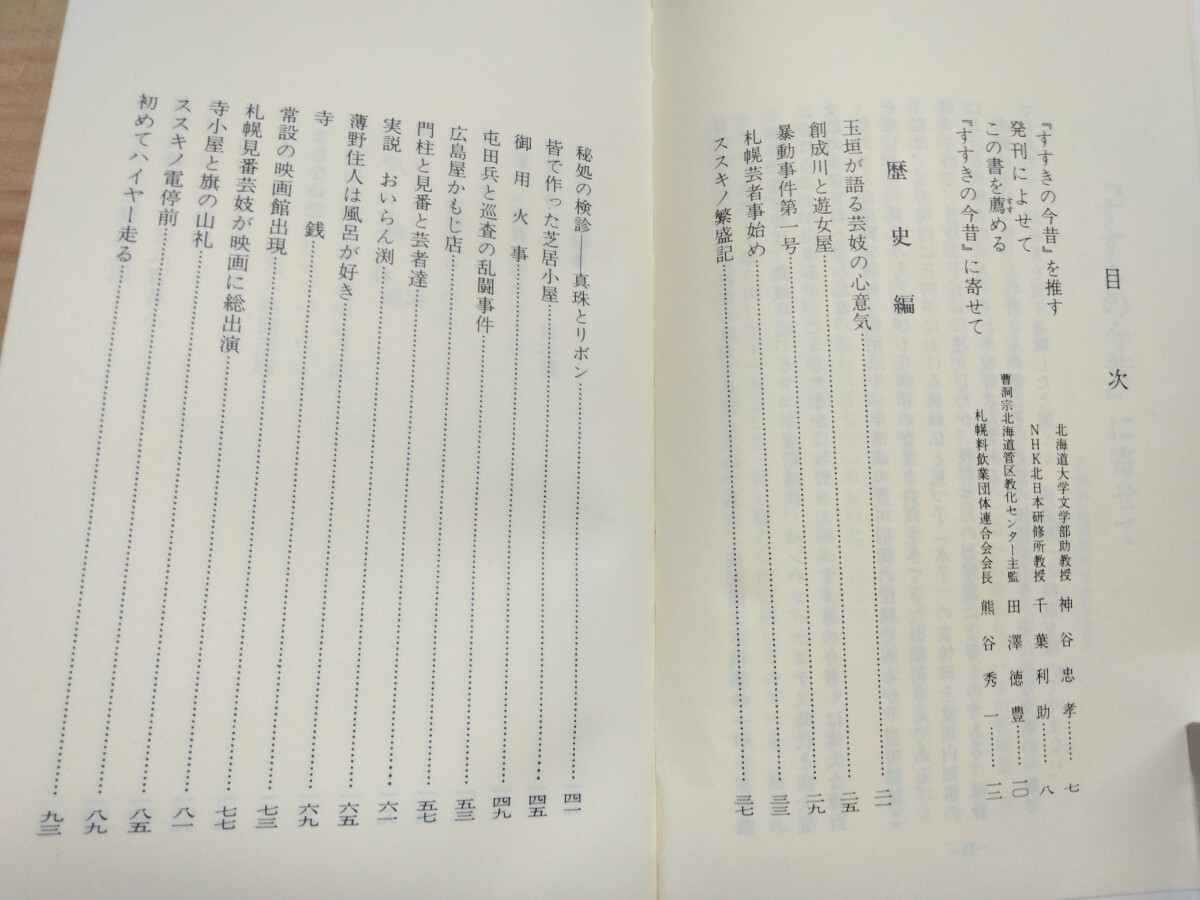 目次
『すすきの今昔』を推す 北海道大学文学部助教授 神谷忠孝……七
発刊によせて NHK北日本研修所教授 千葉利助……八
この書を薦める 曹洞宗北海道管区教化センター主監 田澤徳豊……一〇
すす
『すすきの今昔』に寄せて 札幌料飲業団体連合会会長 熊谷秀一……一二
歴史編
玉垣が語る芸妓の心意気……二一
創成川と遊女屋……二五
暴動事件第一号……二九
札幌芸者事始め……三三
ススキノ繁盛記……三七
秘処の検診――真珠とリボン……四一
皆で作った芝居小屋……四五
御用火事……四九
屯田兵と巡査の乱闘事件……五三
広島屋かもじ店……五七
門柱と見番と芸者達……六一
実説 おいらん渕……六五
薄野住人は風呂が好き……六九
寺銭……七三
常設の映画館出現……七七
札幌見番芸妓が映画に総出演……八一
寺小屋と旗の山礼……八五
ススキノ電停前……八九
初めてハイヤー走る……九三